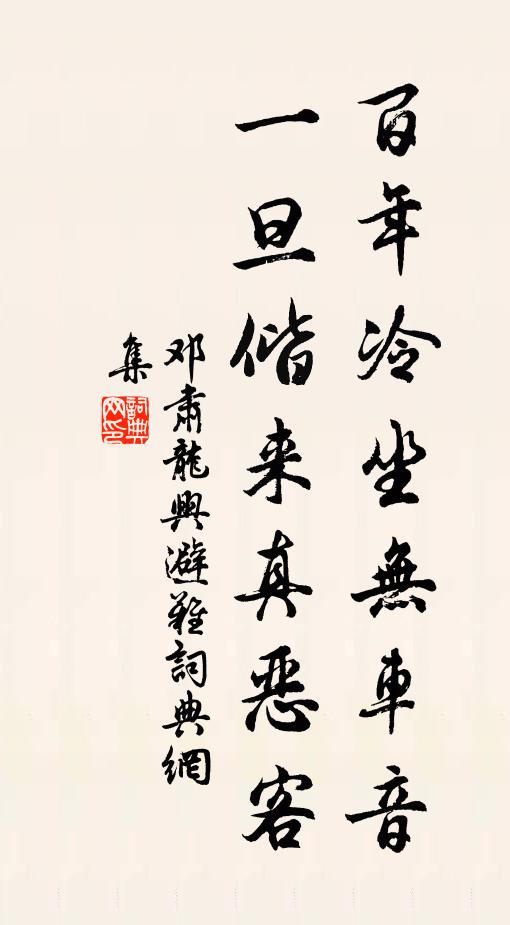 百年冷坐無車音
一旦偕来真恶客
邓肃龍興避難詞典網
集
詞典網印